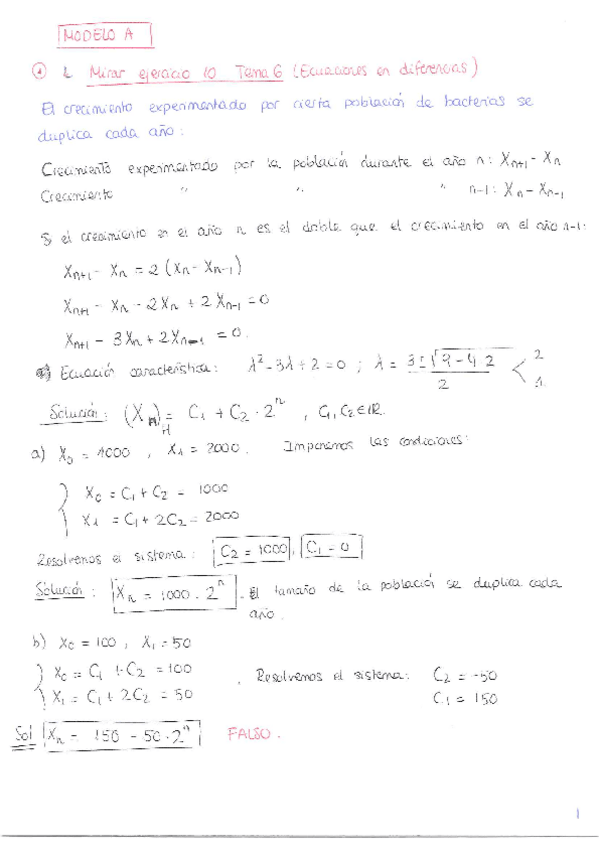 MODELO A
① 1. Mirar ejercicio 10 Tema 6 (Ecuaciones en diferencias)
El crecimiento experimentado por cierta población de bacterias se
duplica cada año:
Crecimiento experimentado por la población durante el año n: Xn+1 - Xn
Crecimiento " " " n-1: Xn - Xn-1
Si el crecimiento en el año n es el doble que el crecimiento en el año n-1:
Xn+1 - Xn = 2 (Xn - Xn-1)
Xn+1 - Xn - 2Xn + 2Xn-1 = 0
Xn+1 - 3Xn + 2Xn-1 = 0.
Ecuación característica: λ² - 3λ + 2 = 0 ; λ = (3 ± √(9 - 4·2))/2 < 2
1
Solución: (Xn)H = C1 + C2 · 2^n , C1, C2 ∈ ℝ.
a) X0 = 1000 , X1 = 2000. Imponemos las condiciones:
X0 = C1 + C2 = 1000
X1 = C1 + 2C2 = 2000
Resolvemos el sistema: C2 = 1000, C1 = 0
Solución: Xn = 1000 · 2^n. El tamaño de la población se duplica cada
año.
b) X0 = 100 , X1 = 50
X0 = C1 + C2 = 100
X1 = C1 + 2C2 = 50
. Resolvemos el sistema: C2 = -50
C1 = 150
Sol Xn = 150 - 50 · 2^n FALSO.
1